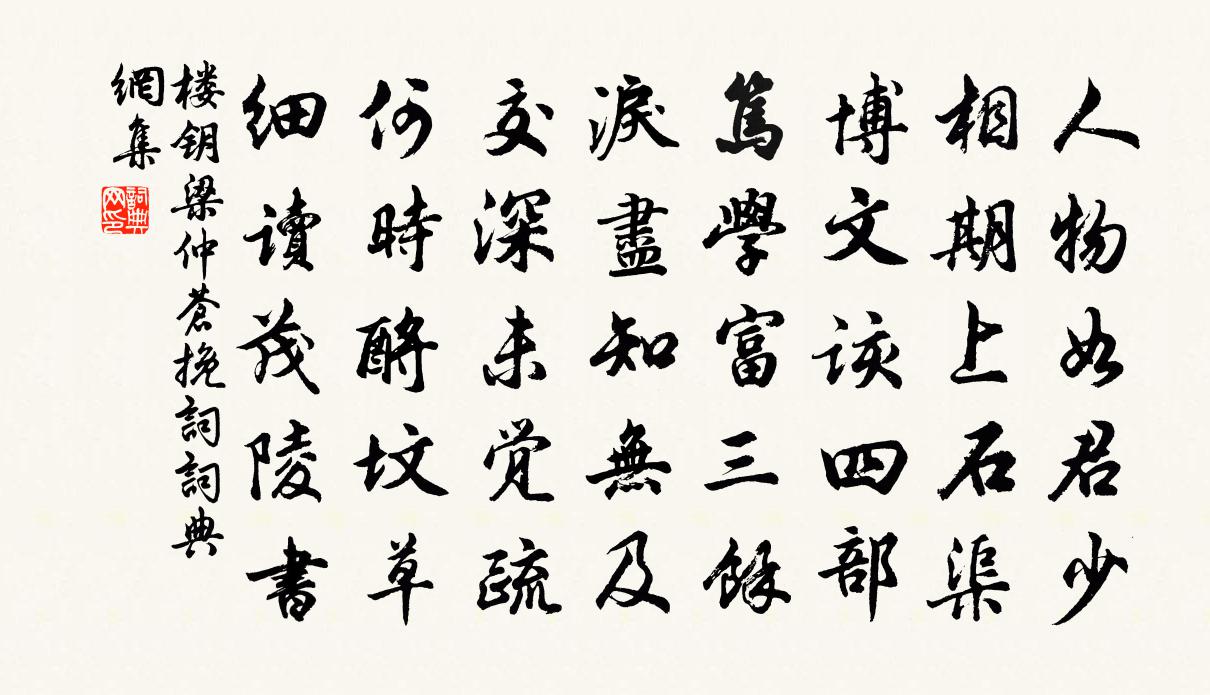 人物如君少
相期上石渠
博文该四部
篤學富三餘
淚盡知無及
交深未覚疏
何時酹坟草
细讀茂陵書
楼钥梁仲蒼挽詞詞典
網集
詞典
网印